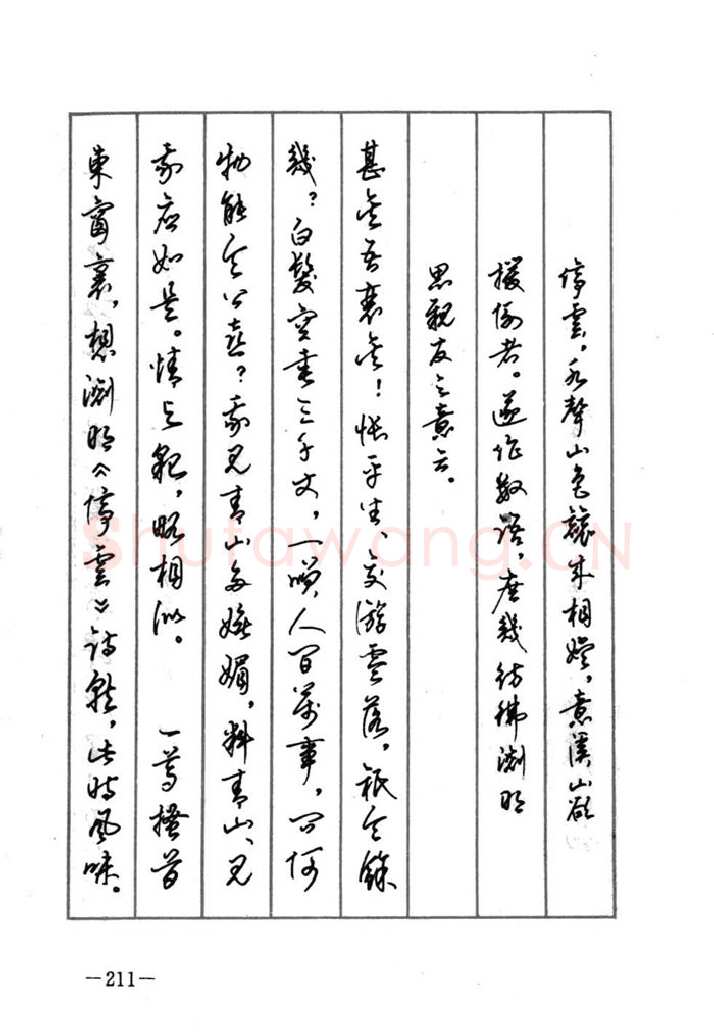 停雲，水聲山色競來相娛，意溪山欲
援例者。遂作數語，庶幾彷彿淵明
思親友之意云。
甚矣吾衰矣！悵平生、交游零落，祇今餘
幾？白髮空垂三千丈，一笑人間萬事，問何
物能令公喜？我見青山多嫵媚，料青山、見
我應如是。情與貌，略相似。　一尊搔首
東窗裏，想淵明《停雲》詩就，此時風味。
Shufawang.CN
—211—